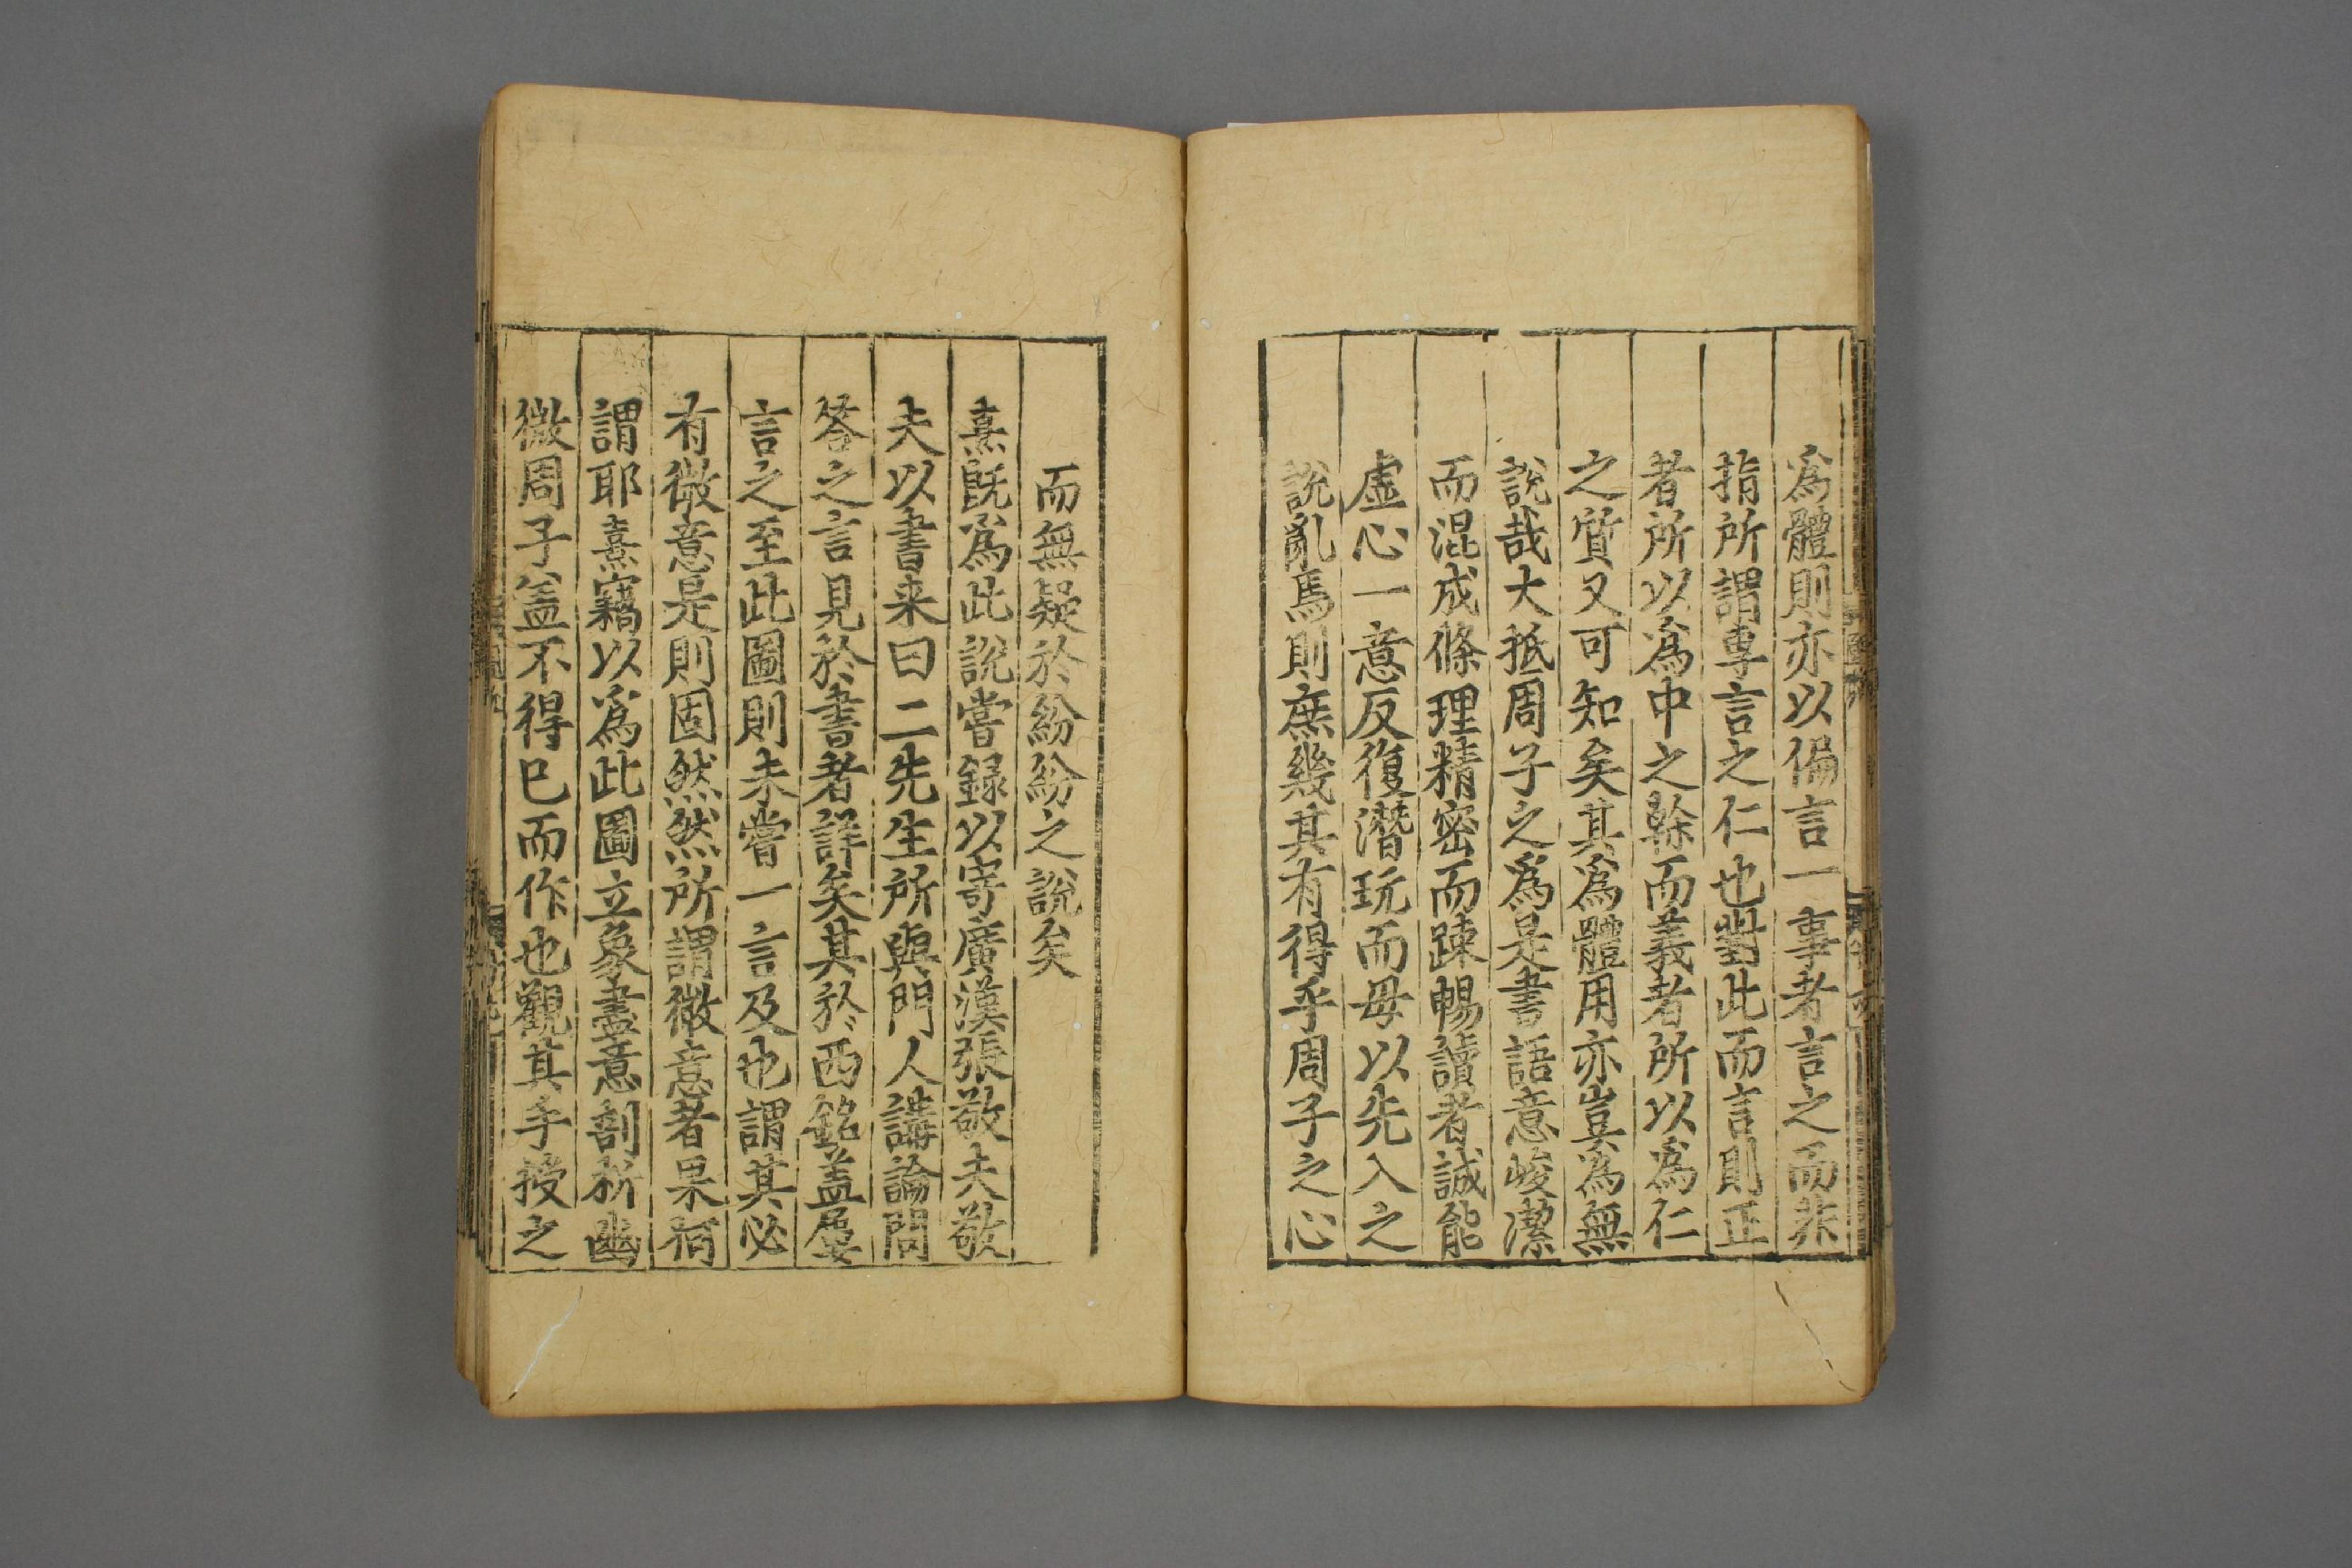 爲體則亦以偏言一事者言之而非
指所謂專言之仁也對此而言則正
者所以爲中之榦而義者所以爲仁
之質又可知矣其爲體用亦豈爲無
說哉大抵周子之爲是書語意峻潔
而混成條理精密而踈暢讀者誠能
虛心一意反復潛玩而毋以先入之
說亂焉則庶幾其有得乎周子之心
而無疑於紛紛之說矣
熹旣爲此說嘗録以寄廣漢張敬夫敬
夫以書来曰二先生所與門人講論問
答之言見於書者詳矣其於西銘盖屢
言之至此圖則未嘗一言及也謂其必
有微意是則固然然所謂微意者果何
謂耶熹竊以爲此圖立象盡意剖析幽
微周子盖不得已而作也觀其手授之